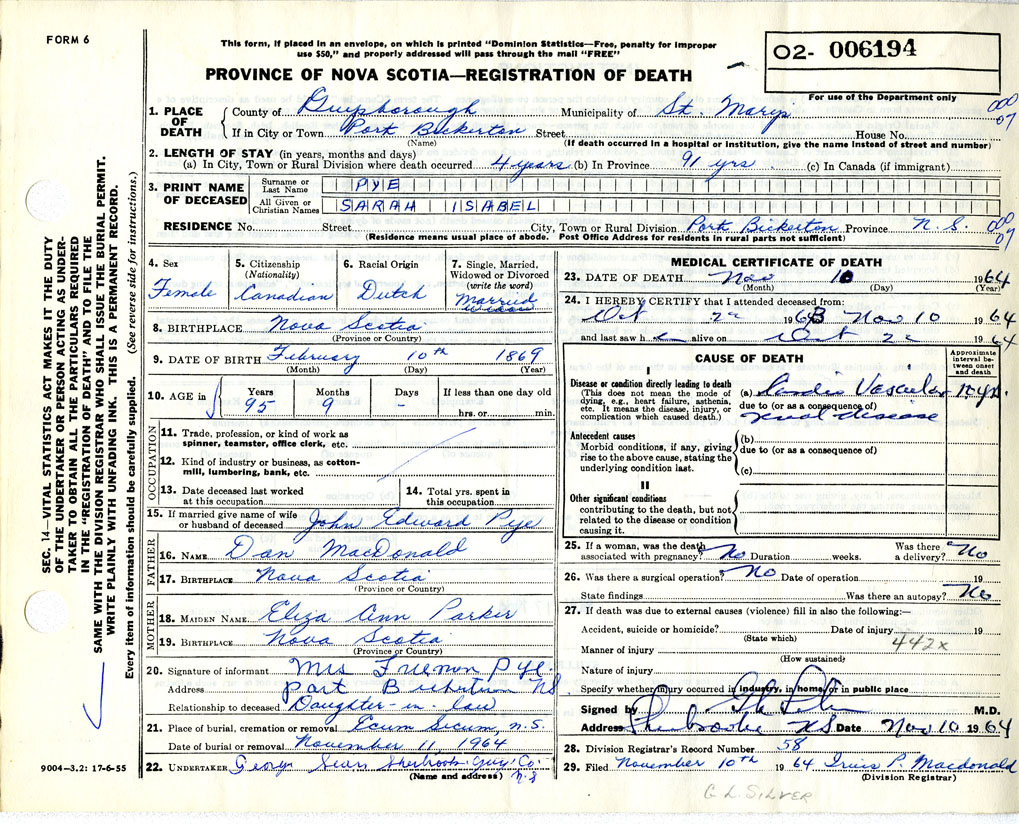 FORM 6
This form, if placed in an envelope, on which is printed "Dominion Statistics—Free, penalty for improper
use $50," and properly addressed will pass through the mail "FREE"
PROVINCE OF NOVA SCOTIA—REGISTRATION OF DEATH
02- 006194
For use of the Department only
1. PLACE OF DEATH { County of Guysborough Municipality of St. Marys 000 07
If in City or Town Port Bickerton Street House No.
(Name) (If death occurred in a hospital or institution, give the name instead of street and number)
2. LENGTH OF STAY (in years, months and days)
(a) In City, Town or Rural Division where death occurred 4 years (b) In Province 91 yrs (c) In Canada (if immigrant)
3. PRINT NAME OF DECEASED
Surname or Last Name PYE
All Given or Christian Names SARAH ISABEL
RESIDENCE No. Street City, Town or Rural Division Port Bickerton Province N.S. 000 07
(Residence means usual place of abode. Post Office Address for residents in rural parts not sufficient)
4. Sex Female
5. Citizenship (Nationality) Canadian
6. Racial Origin Dutch
7. Single, Married, Widowed or Divorced (write the word) Married
8. BIRTHPLACE Nova Scotia
(Province or Country)
9. DATE OF BIRTH February 10th 1869
(Month) (Day) (Year)
10. AGE in { Years 95 Months 9 Days - If less than one day old hrs. or min.
OCCUPATION
11. Trade, profession, or kind of work as spinner, teamster, office clerk, etc.
12. Kind of industry or business, as cotton-mill, lumbering, bank, etc.
13. Date deceased last worked at this occupation
14. Total yrs. spent in this occupation
15. If married give name of wife or husband of deceased John Edward Pye
FATHER
16. NAME Dan MacDonald
17. BIRTHPLACE Nova Scotia
(Province or Country)
MOTHER
18. MAIDEN NAME Eliza Ann Parker
19. BIRTHPLACE Nova Scotia
(Province or Country)
20. Signature of informant Mrs Freeman Pye
Address Port Bickerton NS
Relationship to deceased Daughter-in-law
21. Place of burial, cremation or removal Ecum Secum, N.S.
Date of burial or removal November 11, 1964
22. UNDERTAKER George Sears Sherbrooke Guy. Co. N.S
(Name and address)
MEDICAL CERTIFICATE OF DEATH
23. DATE OF DEATH Nov 10 1964
(Month) (Day) (Year)
24. I HEREBY CERTIFY that I attended deceased from:
Oct 22 196 Nov 10 1964
and last saw h alive on Oct 22 1964
CAUSE OF DEATH
Approximate interval between onset and death
I
Disease or condition directly leading to death
(This does not mean the mode of dying, e.g., heart failure, asthenia, etc. It means the disease, injury, or complication which caused death.)
(a) Cardio Vascular
due to (or as a consequence of)
renal disease
Antecedent causes
Morbid conditions, if any, giving rise to the above cause, stating the underlying condition last.
(b)
due to (or as a consequence of)
(c)
II
Other significant conditions
contributing to the death, but not related to the disease or condition causing it.
25. If a woman, was the death associated with pregnancy? No Duration weeks. Was there a delivery? No
26. Was there a surgical operation? No Date of operation 19
State findings Was there an autopsy? No
27. If death was due to external causes (violence) fill in also the following:—
Accident, suicide or homicide? Date of injury 19
(State which)
442x
Manner of injury
(How sustained)
Nature of injury
Specify whether injury occurred in industry, in home, or in public place
Signed by M.D.
Address Sherbrooke NS Date Nov 10 1964
28. Division Registrar's Record Number 58
29. Filed November 10th 1964 Irvis P. Macdonald
(Division Registrar)
G L SILVER
SEC. 14—VITAL STATISTICS ACT MAKES IT THE DUTY
OF THE UNDERTAKER OR PERSON ACTING AS UNDER-
TAKER TO OBTAIN ALL THE PARTICULARS REQUIRED
IN THE "REGISTRATION OF DEATH" AND TO FILE THE
SAME WITH THE DIVISION REGISTRAR WHO SHALL ISSUE THE BURIAL PERMIT.
WRITE PLAINLY WITH UNFADING INK. THIS IS A PERMANENT RECORD.
Every item of information should be carefully supplied. (See reverse side for instructions.)
9004—3.2: 17-6-55